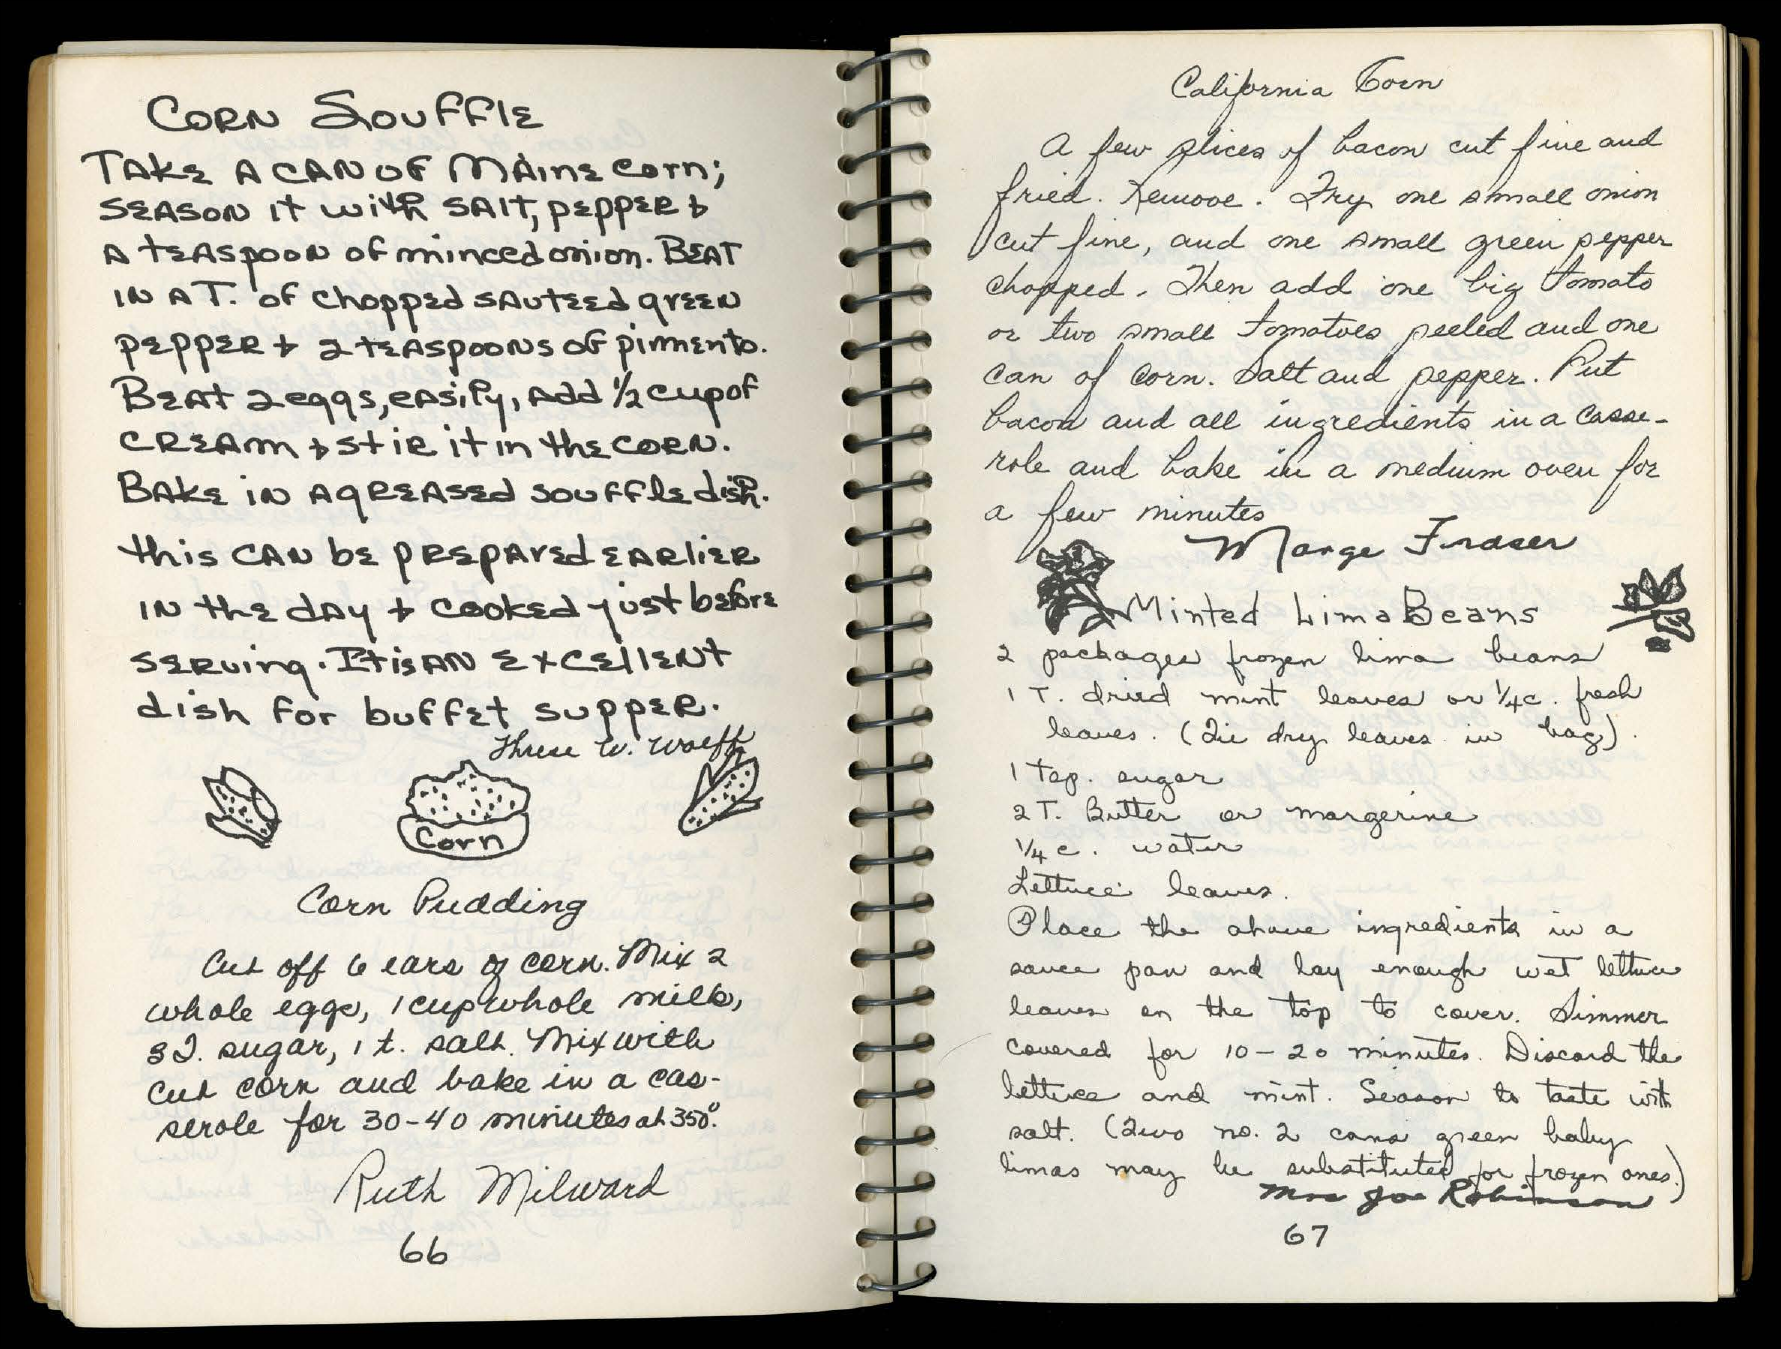 Corn Souffle
Take a can of Maine corn;
season it with salt, pepper &
a teaspoon of minced onion. Beat
in a T. of chopped sauteed green
pepper & 2 teaspoons of pimento.
Beat 2 eggs, easily, add 1/2 cup of
cream & stir it in the corn.
Bake in a greased souffle dish.
This can be prepared earlier
in the day & cooked just before
serving. It is an excellent
dish for buffet supper.
W. Wolff
Corn
Corn Pudding
Cut off 6 ears of corn. Mix 2
whole eggs, 1 cup whole milk,
3 T. sugar, 1 t. salt. Mix with
cut corn and bake in a cas-
serole for 30-40 minutes at 350°.
Ruth Milward
66
California Corn
A few slices of bacon cut fine and
fried. Remove. Fry one small onion
cut fine, and one small green pepper
chopped. Then add one big tomato
or two small tomatoes peeled and one
can of corn. Salt and pepper. Put
bacon and all ingredients in a casse-
role and bake in a medium oven for
a few minutes
Marge Fraser
Minted Lima Beans
2 packages frozen lima beans
1 T. dried mint leaves or 1/4 c. fresh
leaves. (Tie dry leaves in bag).
1 tsp. sugar
2 T. Butter or margerine
1/4 c. water
Lettuce leaves.
Place the above ingredients in a
sauce pan and lay enough wet lettuce
leaves on the top to cover. Simmer
covered for 10-20 minutes. Discard the
lettuce and mint. Season to taste with
salt. (Two no. 2 cans green baby
limas may be substituted for frozen ones.)
Mrs Joe Robinson
67